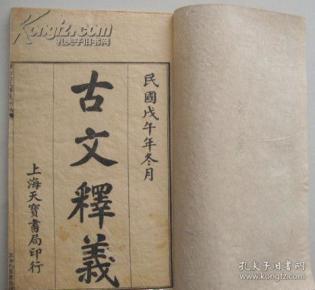 kongfz.com
孔夫子旧书网
民國戊午年冬月
古文釋義
上海天寶書局印行
孔夫子旧书网
www.kongfz.com